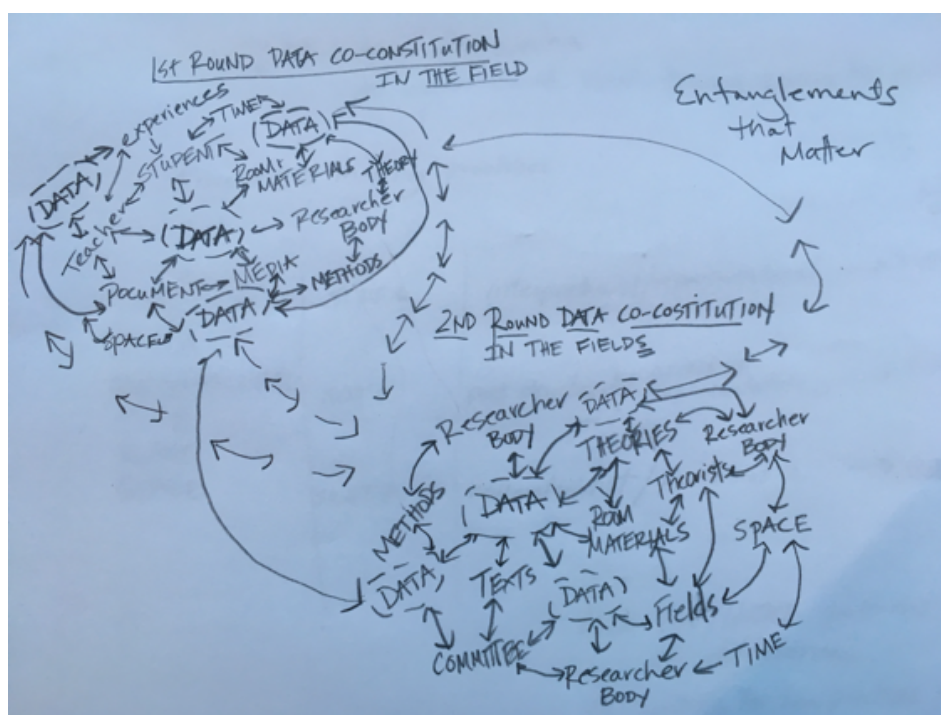 1st ROUND DATA CO-CONSTITUTION
IN THE FIELD
Entanglements
that
Matter
experiences
TIME
(DATA)
STUDENT
ROOM
MATERIALS
THEORY
(DATA)
Teacher
(DATA)
Researcher
BODY
DOCUMENT
MEDIA
METHODS
(DATA)
SPACE
2ND ROUND DATA CO-COSTITUTION
IN THE FIELDS
Researcher
BODY
DATA
THEORIES
Researcher
BODY
Theorists
METHODS
(DATA)
ROOM
MATERIALS
SPACE
(DATA)
TEXTS
(DATA)
Fields
COMMITTEE
Researcher
BODY
TIME